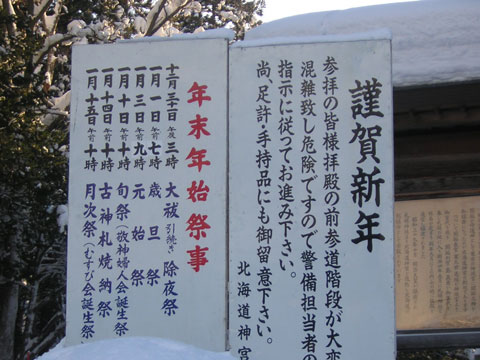 謹賀新年
参拝の皆様拝殿の前参道階段が大変
混雑致し危険ですので警備担当者の
指示に従ってお進み下さい。
尚、足許・手持品にも御留意下さい。
北海道神宮
年末年始祭事
十二月三十一日 午后三時 大祓 引続き 除夜祭
一月一日 午前七時 歳旦祭
一月三日 午前九時 元始祭
一月十日 午前十時 旬祭(敬神婦人会誕生祭)
一月十四日 午前十時 古神札焼納祭
一月十五日 午前十時 月次祭(むすび会誕生祭)